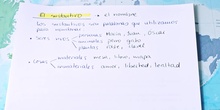 El sustantivo → el nombre
Los sustantivos son palabras que utilizamos
para nombrar
- Seres vivos personas: María, Juan, Oscar
animales: perro, gato
plantas:
- Cosas materiales: mesa, libro,
inmateriales: amor, libertad,